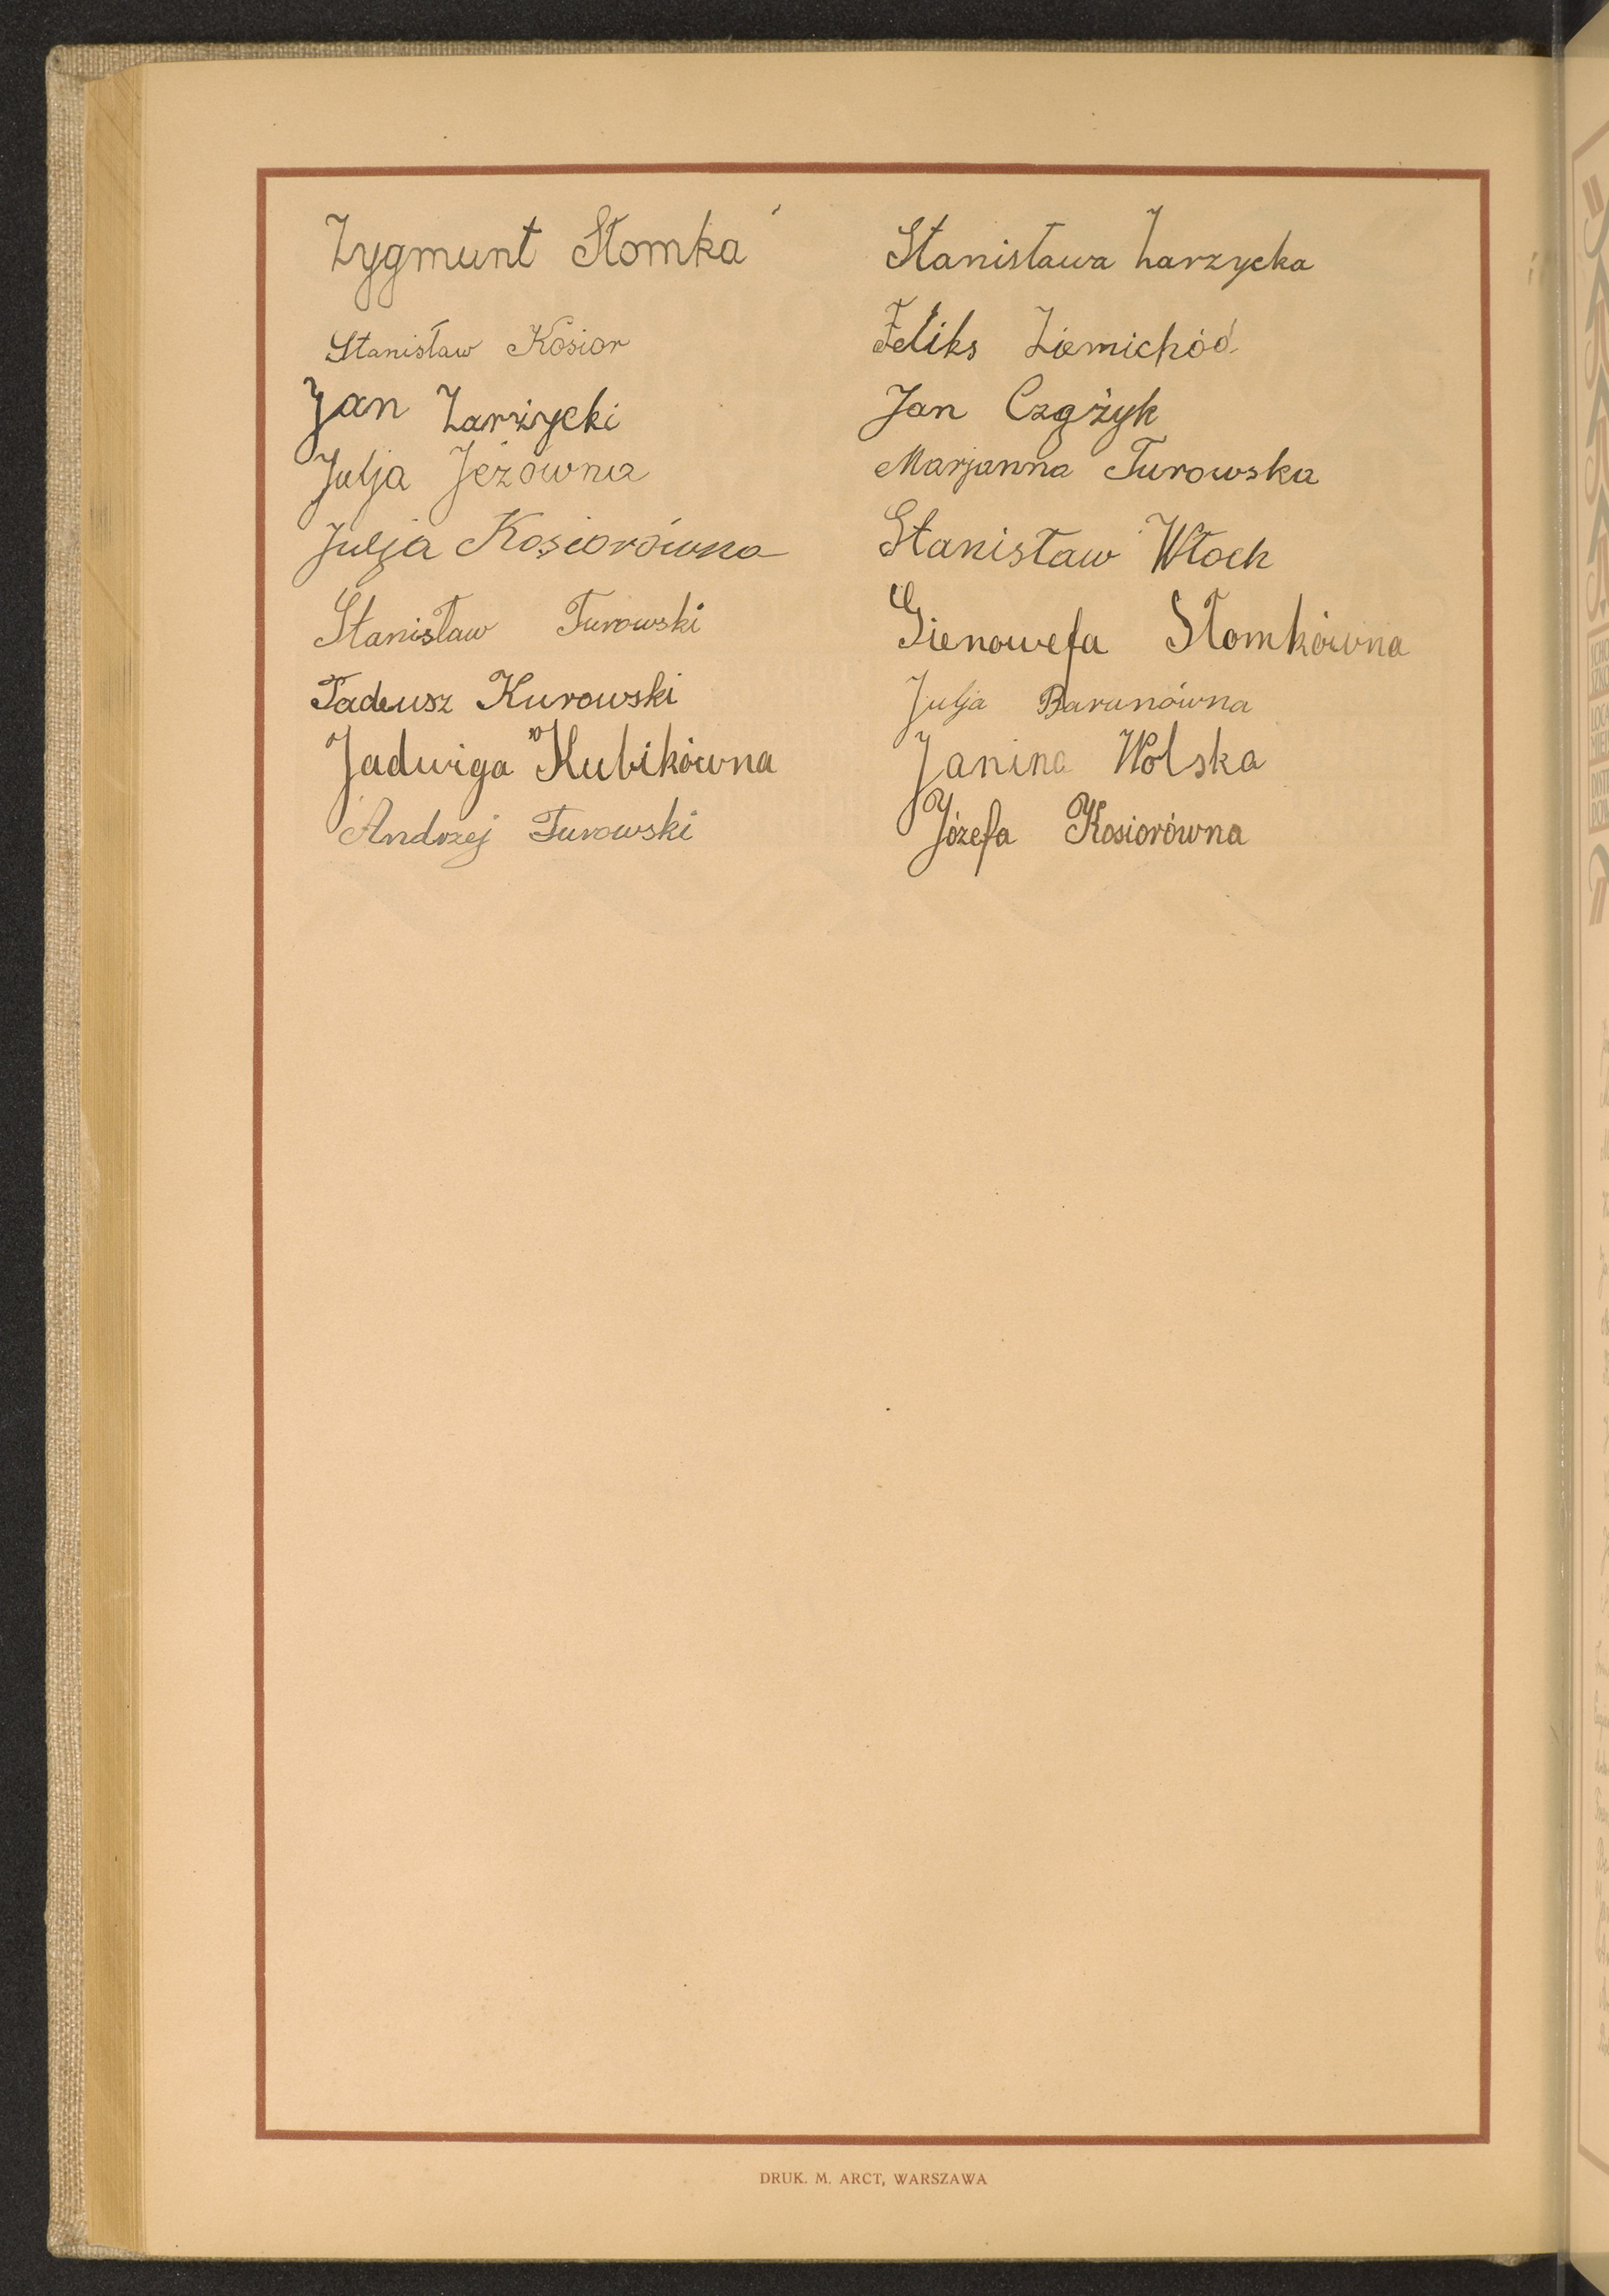 Zygmunt Słomka
Stanisław Kosior
Jan Zarżycki
Julja Jeżówna
Julja Kosiorówna
Stanisław Turowski
Tadeusz Kurowski
Jadwiga Kubikówna
Andrzej Turowski
Stanisława Zarzycka
Feliks Ziemichód
Jan Czgżyk
Marjanna Turowska
Stanisław Włoch
Gienowefa Słomkówna
Julja Baranówna
Janina Wolska
Józefa Kosiorówna
DRUK. M. ARCT, WARSZAWA